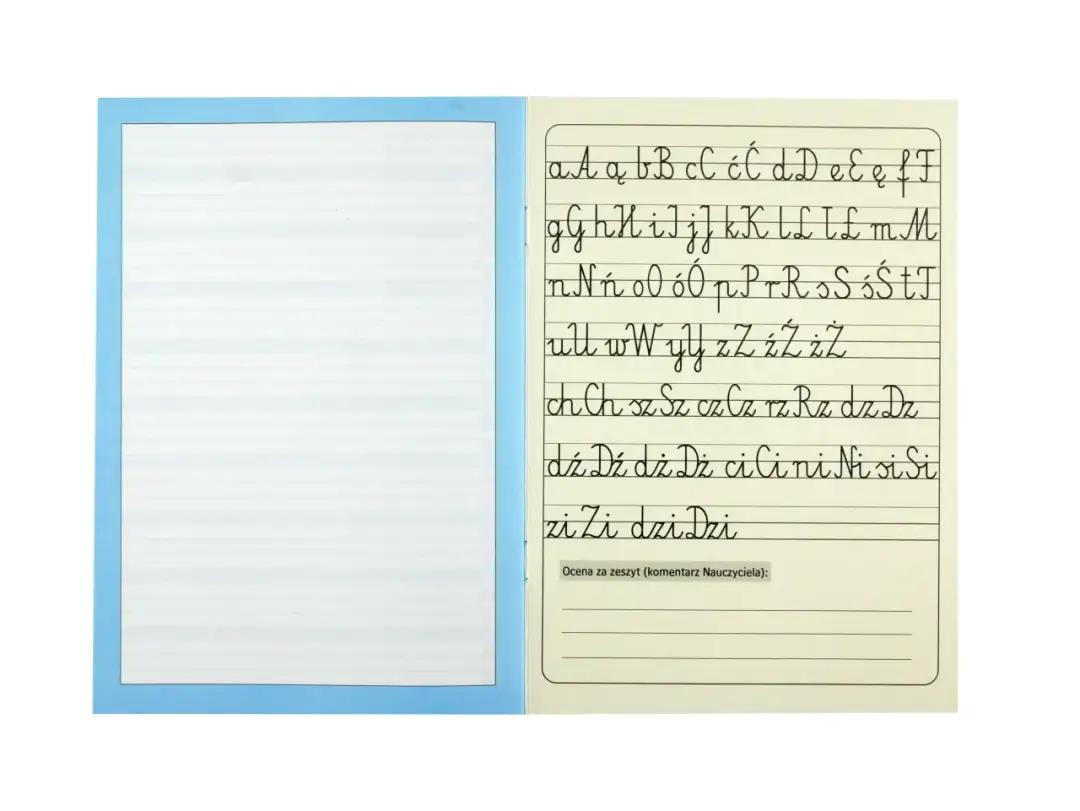 aA ą bB cC ćĆ dD eE ę fF
gG hH iI jJ kK lL łŁ mM
nN ń oO óÓ pP rR sS śŚ tT
uU wW yY zZ źŹ żŻ
ch Ch sz Sz cz Cz rz Rz dz Dz
dź Dź dż Dż ci Ci ni Ni si Si
zi Zi dzi Dzi
Ocena za zeszyt (komentarz Nauczyciela):